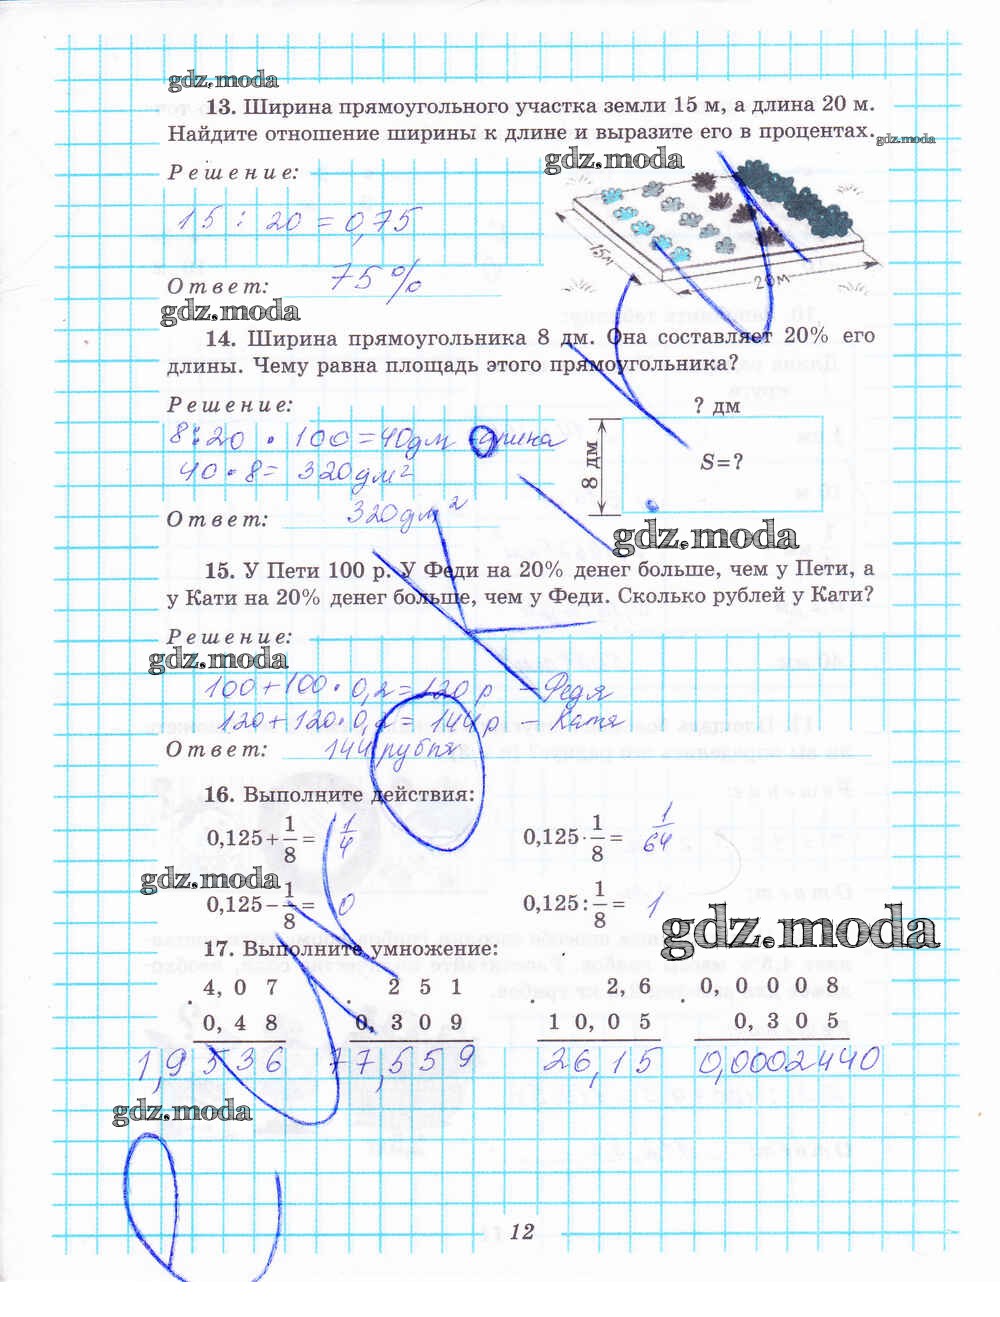 gdz.moda
13. Ширина прямоугольного участка земли 15 м, а длина 20 м.
Найдите отношение ширины к длине и выразите его в процентах.
gdz.moda
gdz.moda
Решение:
15 : 20 = 0,75
15м
20м
Ответ: 75%
gdz.moda
14. Ширина прямоугольника 8 дм. Она составляет 20% его
длины. Чему равна площадь этого прямоугольника?
Решение:
? дм
8 : 20 · 100 = 40дм - длина
40 · 8 = 320дм²
8 дм
S=?
Ответ: 320дм²
gdz.moda
15. У Пети 100 р. У Феди на 20% денег больше, чем у Пети, а
у Кати на 20% денег больше, чем у Феди. Сколько рублей у Кати?
Решение:
gdz.moda
100+100·0,2=120р - Федя
120+120·0,2=144р - Катя
Ответ: 144 рубля
16. Выполните действия:
0,125+1/8= 1/4
0,125·1/8= 1/64
gdz.moda
0,125−1/8= 0
0,125:1/8= 1
gdz.moda
17. Выполните умножение:
4,07 251 2,6 0,0008
· 0,48 · 0,309 · 10,05 · 0,305
1,9536 77,559 26,15 0,0002440
gdz.moda
12